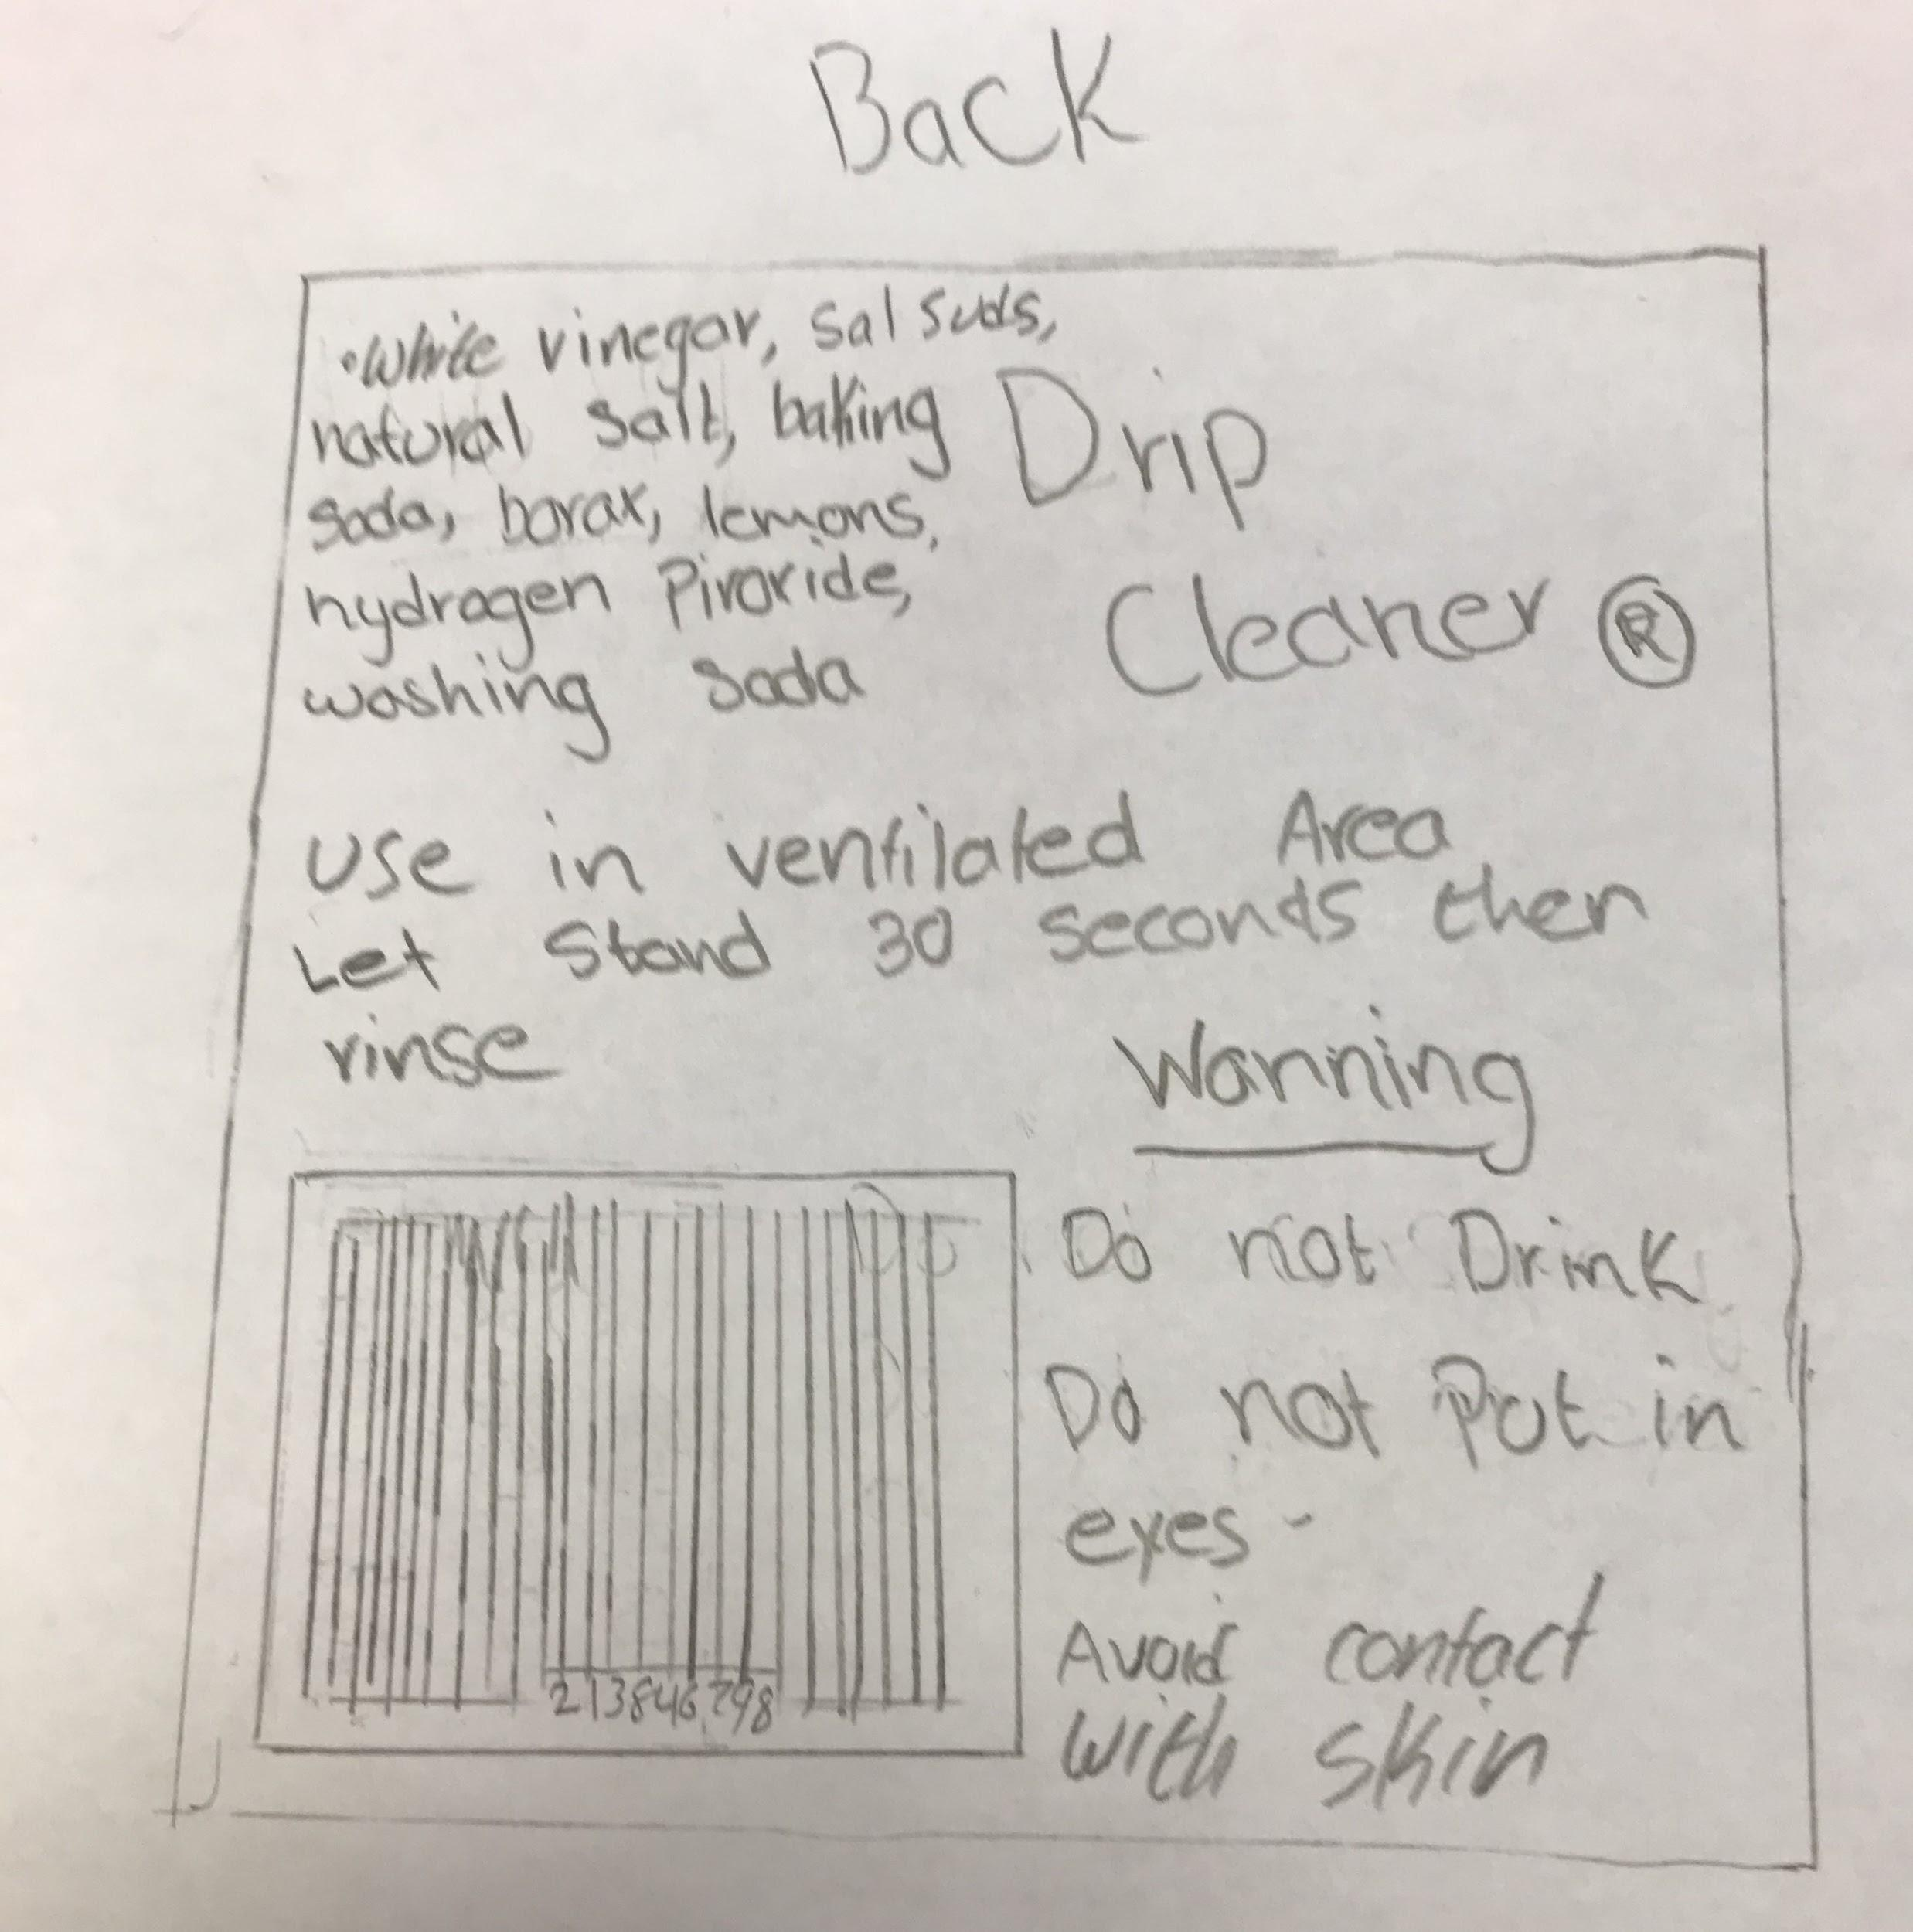 Back
•White vinegar, sal suds,
natural salt, baking
soda, borax, lemons,
hydrogen Piroxide,
washing soda
Drip
Cleaner ®
Use in ventilated Area
Let Stand 30 seconds then
rinse
Warning
Do not Drink
Do not Put in
eyes -
Avoid contact
with skin
213846298